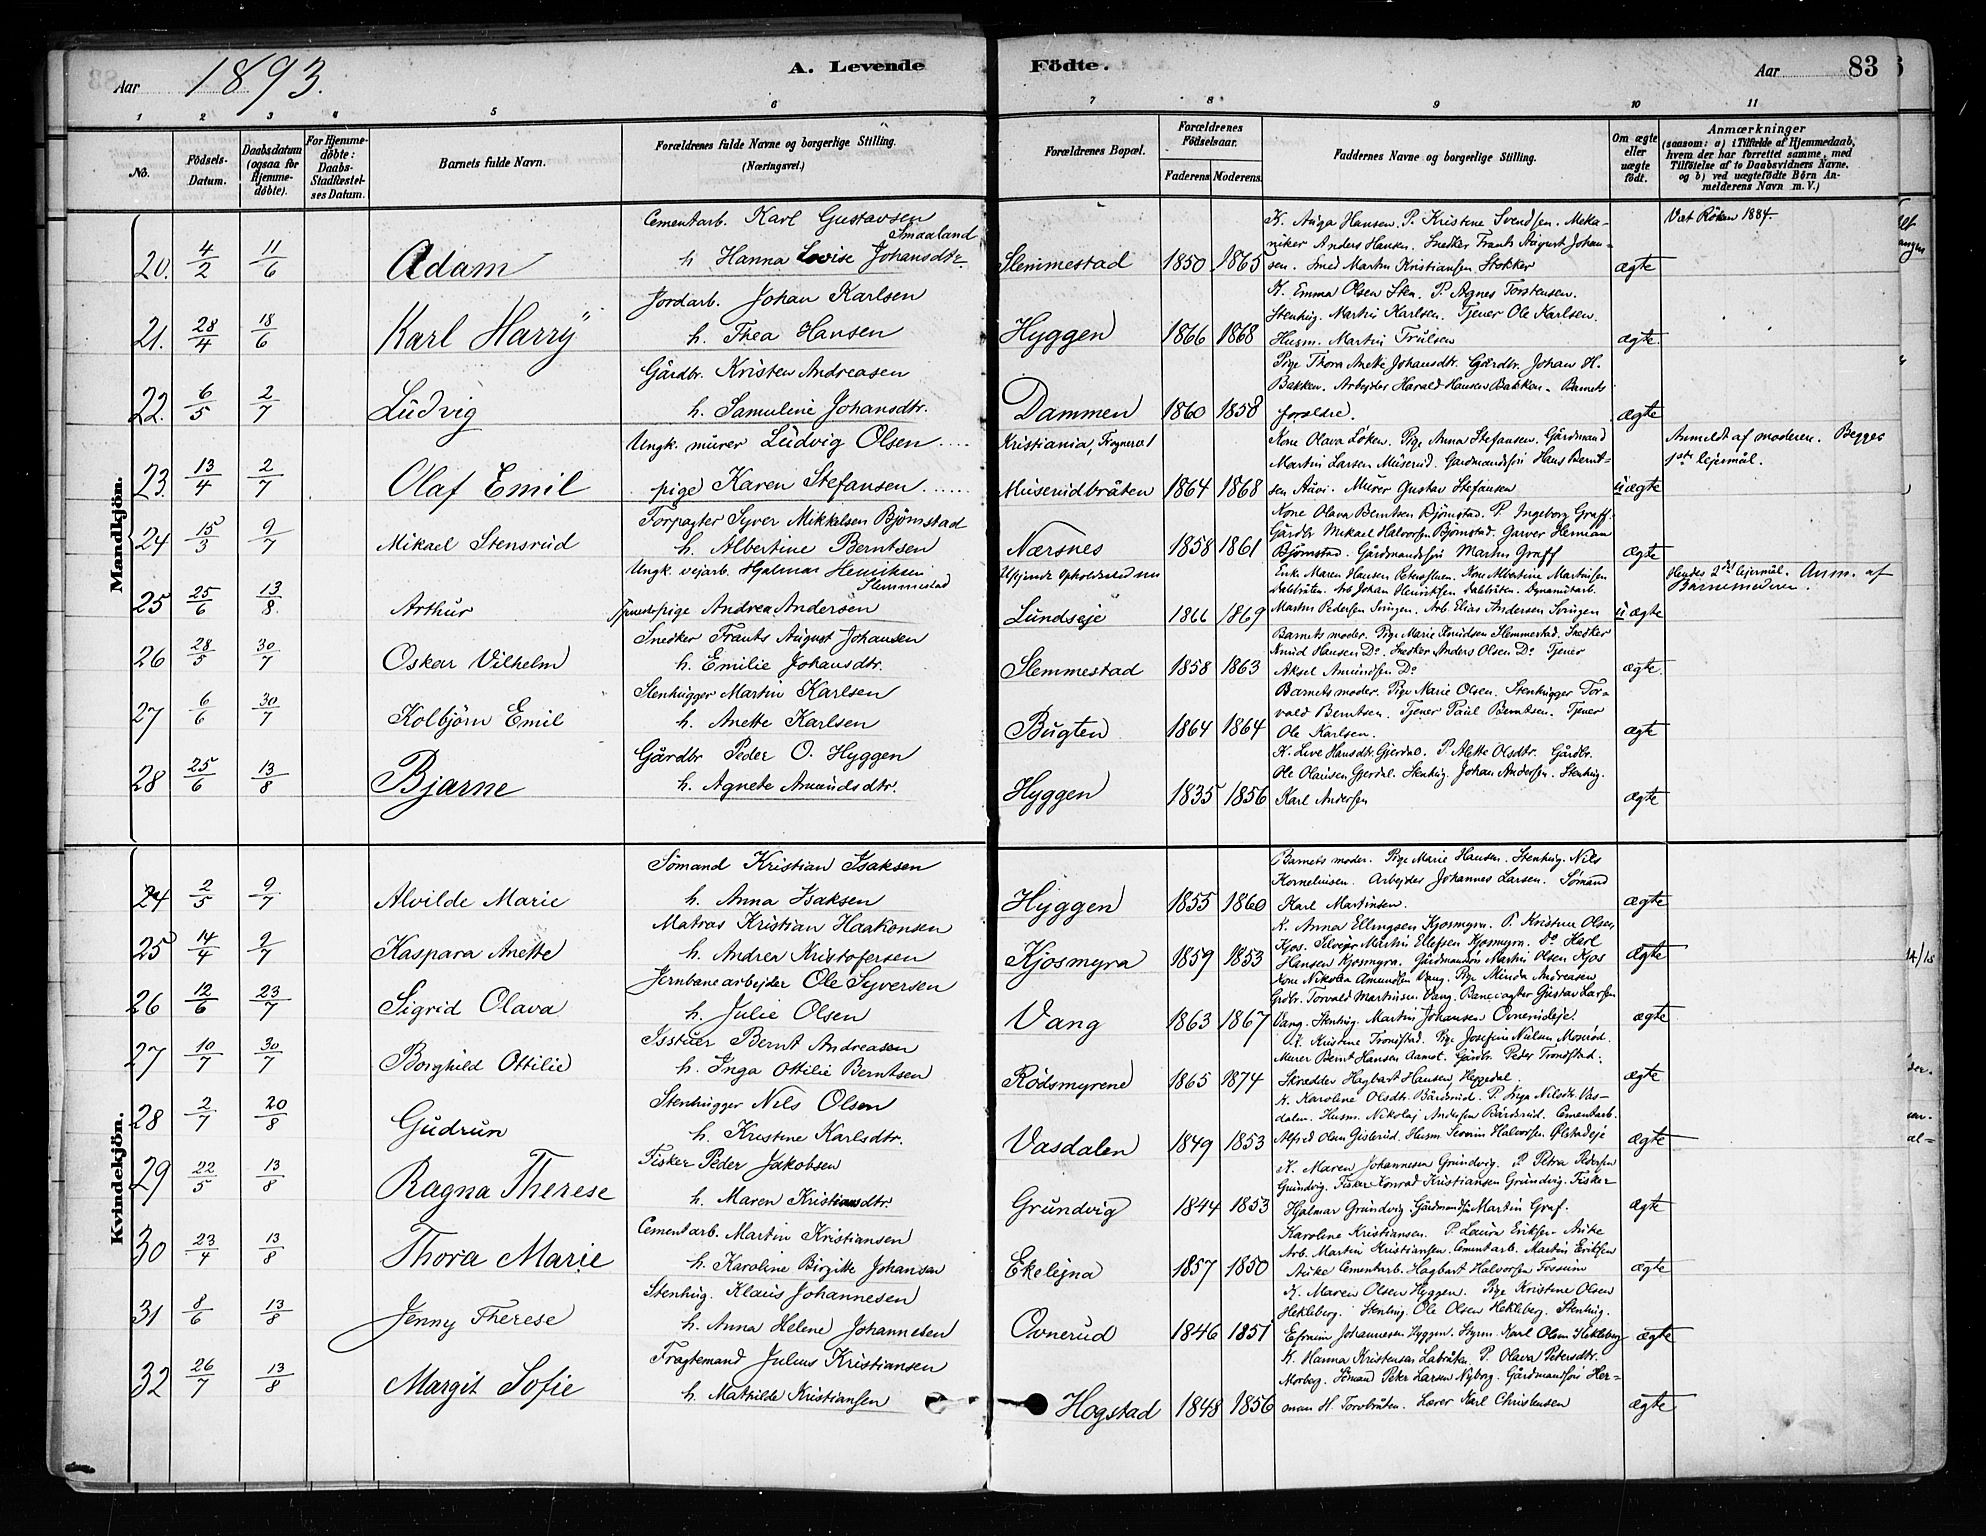 Aar 1893. A. Levende Födte. Aar 83
1 2 3 4 5 6 7 8 9 10 11
No. Födsels-Datum. Daabsdatum (ogsaa for Hjemmedöbte). For Hjemmedöbte: Daabs-Stadfæstelses Datum. Barnets fulde Navn. Forældrenes fulde Navne og borgerlige Stilling. (Næringsvei.) Forældrenes Bopæl. Forældrenes Födselsaar. Faderens. Moderens. Faddernes Navne og borgerlige Stilling. Om ægte eller uægte födt. Anmærkninger (saasom: a) i Tilfælde af Hjemmedaab, hvem der har forrettet samme, med Tilföielse af to Daabsvidners Navne. og b) ved uægtefödte Börn Anmelderens Navn m. V.)
Mandkjön.
Cementarb. Karl Gustavsen K. Auga Hansen. P. Kristine Svendsen. Meka- Vat Röken 1884
Smaaland niker Anders Hansen. Snedker Frants August Johan-
20. 4/2 11/6 Adam h. Hanna Lovise Johansdtr. Slemmestad 1850 1865 sen. Smed Martin Kristiansen. Stokker ægte
Jordarb. Johan Karlsen K. Emma Olsen Sten. P. Agnes Torstensen.
Stenhug. Martin Karlsen. Tjener Ole Karlsen.
21. 28/4 18/6 Karl Harry h. Thea Hansen Hyggen 1866 1868 Husm. Martin Trulsen ægte
Gårdbr. Kristen Andreasen Pige Thora Anette Johansdtr. Gårdbr. Johan H.
Bakken. Arbejder Harald Hansen Bakken. Barnets
22. 6/5 2/7 Ludvig h. Samuline Johansdtr. Dammen 1860 1858 forældre. ægte
Ungk. murer Ludvig Olsen Kristiania, Frognerv. 1 Kone Olava Löken. Pige Anna Stefansen. Gårdmand Anmeldt af moderen. Begges
Martin Larsen Muserud. Gardmandssön Hans Bernt- 1ste lejermål.
23. 13/4 2/7 Olaf Emil pige Karen Stefansen Muserudbråten 1864 1868 sen Murer Gustav Stefansen uægte
Forpagter Syver Mikkelsen Bjömstad Kone Olava Berntsen Bjömstad. P. Ingeborg Graff.
Gårdbr Mikael Halvorsen Bjömstad. Garver Herman
24 15/3 9/7 Mikael Stensrud h. Albertine Berntsen Nærsnes 1858 1861 Bjömstad. Gårdmandssön Martin Graff ægte
Ungk. vejarb. Hjalmar Henriksen Enke Maren Hansen Kone Albertine Martinsen Hendes 2det lejermål. Anm. af
Slemmestad Dalbråten. Arb Johan Henriksen Dalbråten. Dynamitarb. Barnemoderen.
25 25/6 13/8. Arthur Tjenestepige Andrea Andersen Lundseje 1866 1869 Martin Pedersen Svingen. Arb Elias Andersen Svingen uægte
Snedker Frants August Johansen Barnets moder. Pige Marie Knudsen Slemmestad. Snedker
Knud Hansen Do. Snedker Anders Olsen Do. Tjener
26 28/5 30/7 Oskar Vilhelm h. Emilie Johansdtr. Slemmestad 1858 1863 Aksel Amundsen Do ægte.
Stenhugger Martin Karlsen Barnets moder. Pige Marie Olsen. Stenhugger Tor-
vald Berntsen. Tjener Paul Berntsen. Tjener
27 6/6 30/7 Kolbjörn Emil h. Anette Karlsen Bugten 1864 1864 Ole Karlsen. ægte
Gårdbr Peder O. Hyggen K. Live Hansdtr. Gjerdal. P. Alette Olsdtr. Gårdbr.
Ole Olausen Gjerdal. Stenhug. Johan Andersen. Stenhug.
28 25/6 13/8 Bjarne h. Agnete Amundsdtr. Hyggen 1835 1856 Karl Andersen ægte
Kvindekjön.
Sömand Kristian Isaksen Barnets moder. Pige Marie Hansen. Stenhug. Nils
Korneliusen. Arbejder Johannes Larsen. Sömand
24 2/5 9/7 Alvilde Marie h. Anna Isaksen Hyggen 1855 1860 Karl Martinsen. ægte
Matros Kristian Haakonsen K. Anna Ellingsen Kjosmyra. P. Kristine Olsen
Kjos. Martin Ellefsen Kjosmyra. Do Karl
25 14/4 9/7 Kaspara Anette h. Andrea Kristofersen Kjosmyra 1859 1853 Hansen Kjosmyra. Gårdmandssön Martin Olsen Kjos ægte
Jernbanearbejder Ole Syversen Kone Nikolea Amundsen Vang. Pige Minda Andreasen
Grdbr. Torvald Martinsen Vang. Banevagter Gustav Larsen
26 12/6 23/7 Sigrid Olava h. Julie Olsen Vang 1863 1867 Vang. Stenhug. Martin Johansen Ovnerudeje. ægte
Bernt Andreasen Kristine Tronstad. Pige Josefine Nielsen
Murer Bernt Hansen Aamot. Gårdbr. Peder Tronstad.
27 10/7 30/7 Borghild Ottilie h. Inga Ottilie Berntsen Rödsmyrene 1865 1874 Skrædder Hagbart Hansen, Heggedal. ægte
Stenhugger Nils Olsen K. Karoline Olsdtr. Bårdsrud. P. Inga Nilsdtr. Vas-
dalen. Husm. Nikolaj Andersen Bårdsrud. Cementarb.
28 2/7 20/8 Gudrun h. Kristine Karlsdtr. Vasdalen 1849 1853 Alfred Olsen Gislerud. Husm. Severin Halvorsen Ölstadeje ægte
Fisker Peder Jakobsen K. Maren Johannesen Grundvig. P. Petra Pedersen
Grundvig. Fisker Konrad Kristiansen Grundvig. Fisker
29 22/5 13/8 Ragna Therese h. Maren Kristiansdtr. Grundvig 1844 1853 Hjalmar Grundvig. Gårdmandssön Martin Graf. ægte
Cementarb. Martin Kristiansen Karoline Kristiansen. P. Laura Eriksen Auke
Arb. Martin Kristiansen. Cementarb. Martin Eriksen
30 23/4 13/8 Thora Marie h. Karoline Birgitte Johansen Ekelejna 1857 1850 Auke Cementarb. Hagbart Halvorsen ægte
Stenhug. Klaus Johannesen K. Maren Olsen Hyggen. Pige Kristine Olsen
Hekleberg. Stenhug. Ole Olsen Hekleberg. Stenhug.
31 8/6 13/8 Jenny Therese h. Anna Helene Johannesen Ovnerud 1846 1851 Efraim Johannesen Hyggen. Styrm. Karl Olsen Hekleberg ægte
Fragtemand Julius Kristiansen K. Hanna Kristensen Labråten. P. Olava Petersdtr.
Morberg. Sömand Peter Larsen Nyborg. Gårdmandssön Her-
32 26/7 13/8 Margit Sofie h. Mathilde Kristiansen Hogstad 1848 1856 man H. Torvbråten. Lærer Karl Christensen ægte